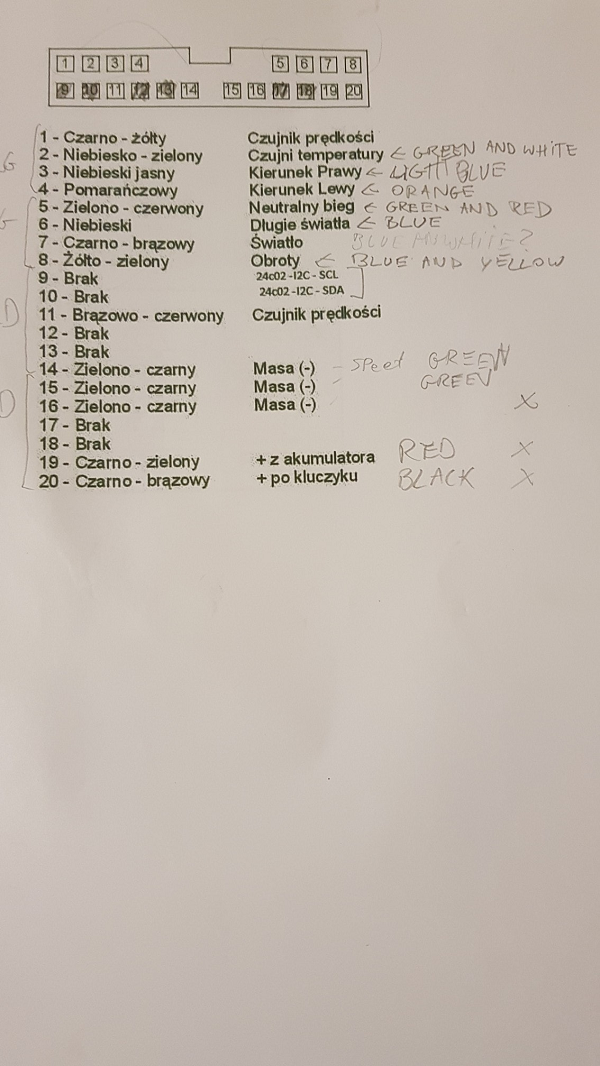 1 2 3 4 5 6 7 8
9 10 11 12 13 14 15 16 17 18 19 20
1 - Czarno - żółty Czujnik prędkości
2 - Niebiesko - zielony Czujni temperatury ← GREEN AND WHITE
3 - Niebieski jasny Kierunek Prawy ← LIGHT BLUE
4 - Pomarańczowy Kierunek Lewy ← ORANGE
5 - Zielono - czerwony Neutralny bieg ← GREEN AND RED
6 - Niebieski Długie światła ← BLUE
7 - Czarno - brązowy Światło BLUE AN WHITE?
8 - Żółto - zielony Obroty ← BLUE AND YELLOW
9 - Brak 24c02 -I2C - SCL
10 - Brak 24c02 -I2C - SDA
11 - Brązowo - czerwony Czujnik prędkości
12 - Brak
13 - Brak
14 - Zielono - czarny Masa (-) - SPeet GREEN
15 - Zielono - czarny Masa (-) - GREEN
16 - Zielono - czarny Masa (-) X
17 - Brak
18 - Brak
19 - Czarno - zielony + z akumulatora RED X
20 - Czarno - brązowy + po kluczyku BLACK X